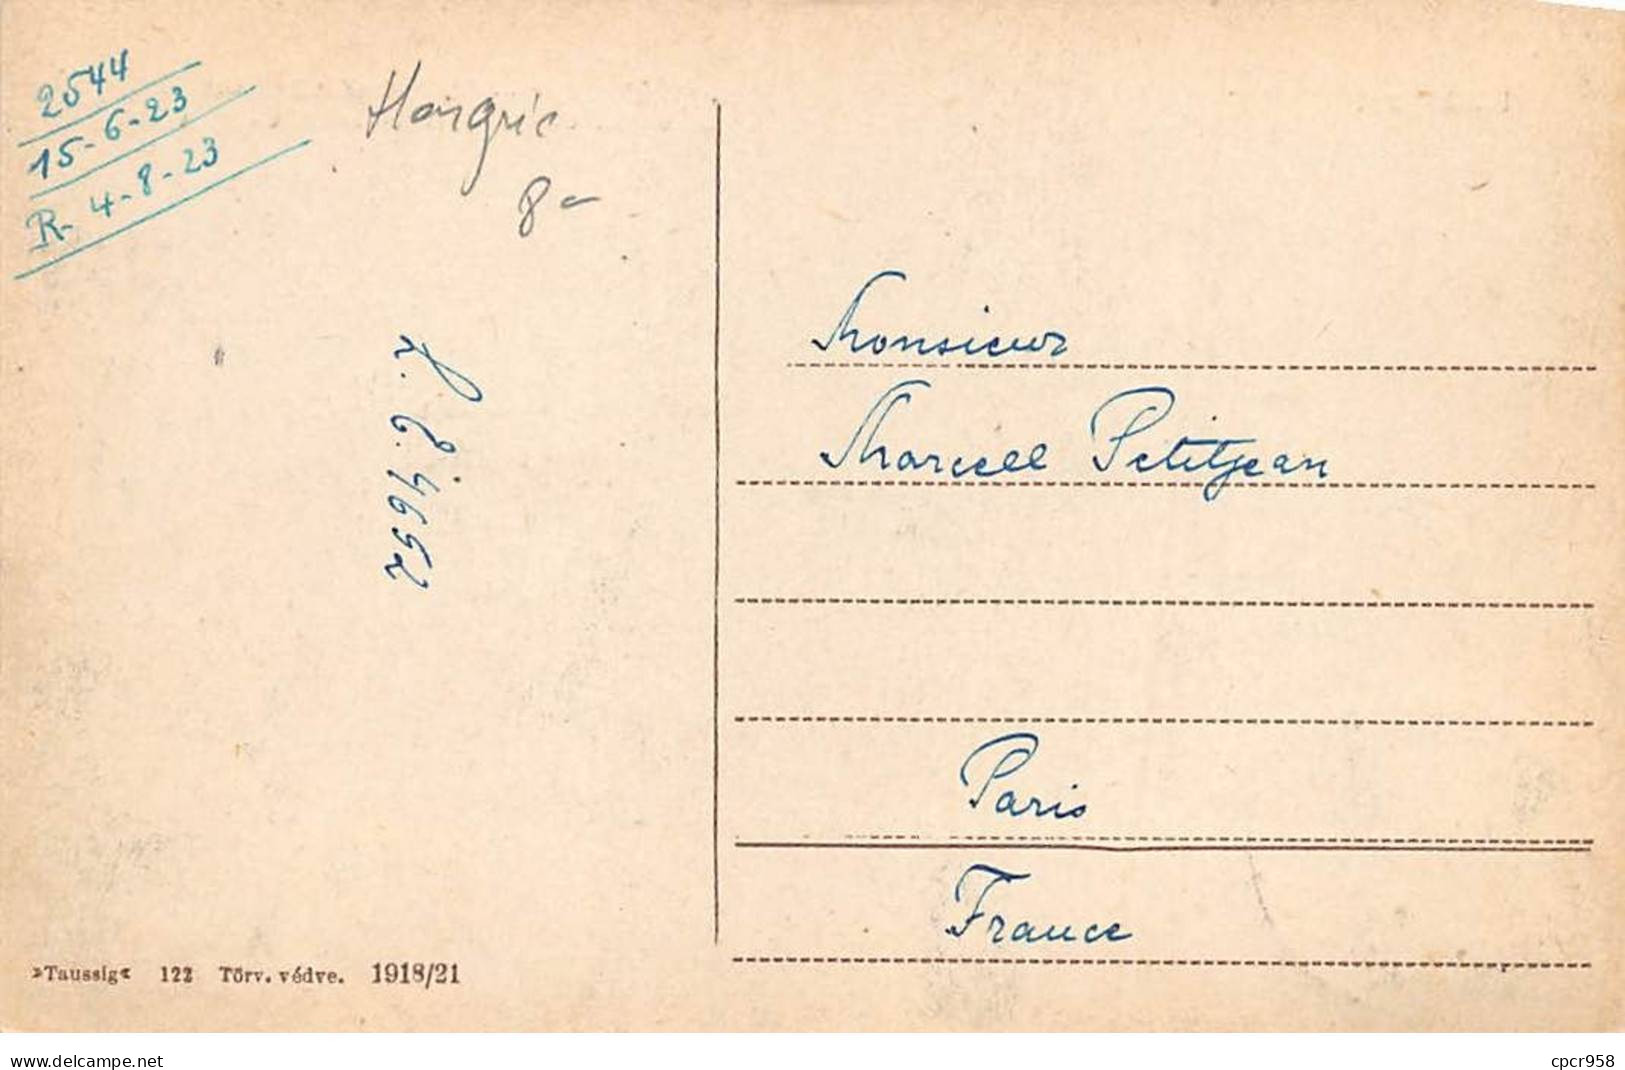 2544
15-6-23
R- 4-8-23
Hongrie
8-
L. C. 4652
Monsieur
Marcell Petitjean
Paris
France
»Taussig« 122 Törv. védve. 1918/21
www.delcampe.net
cpcr958